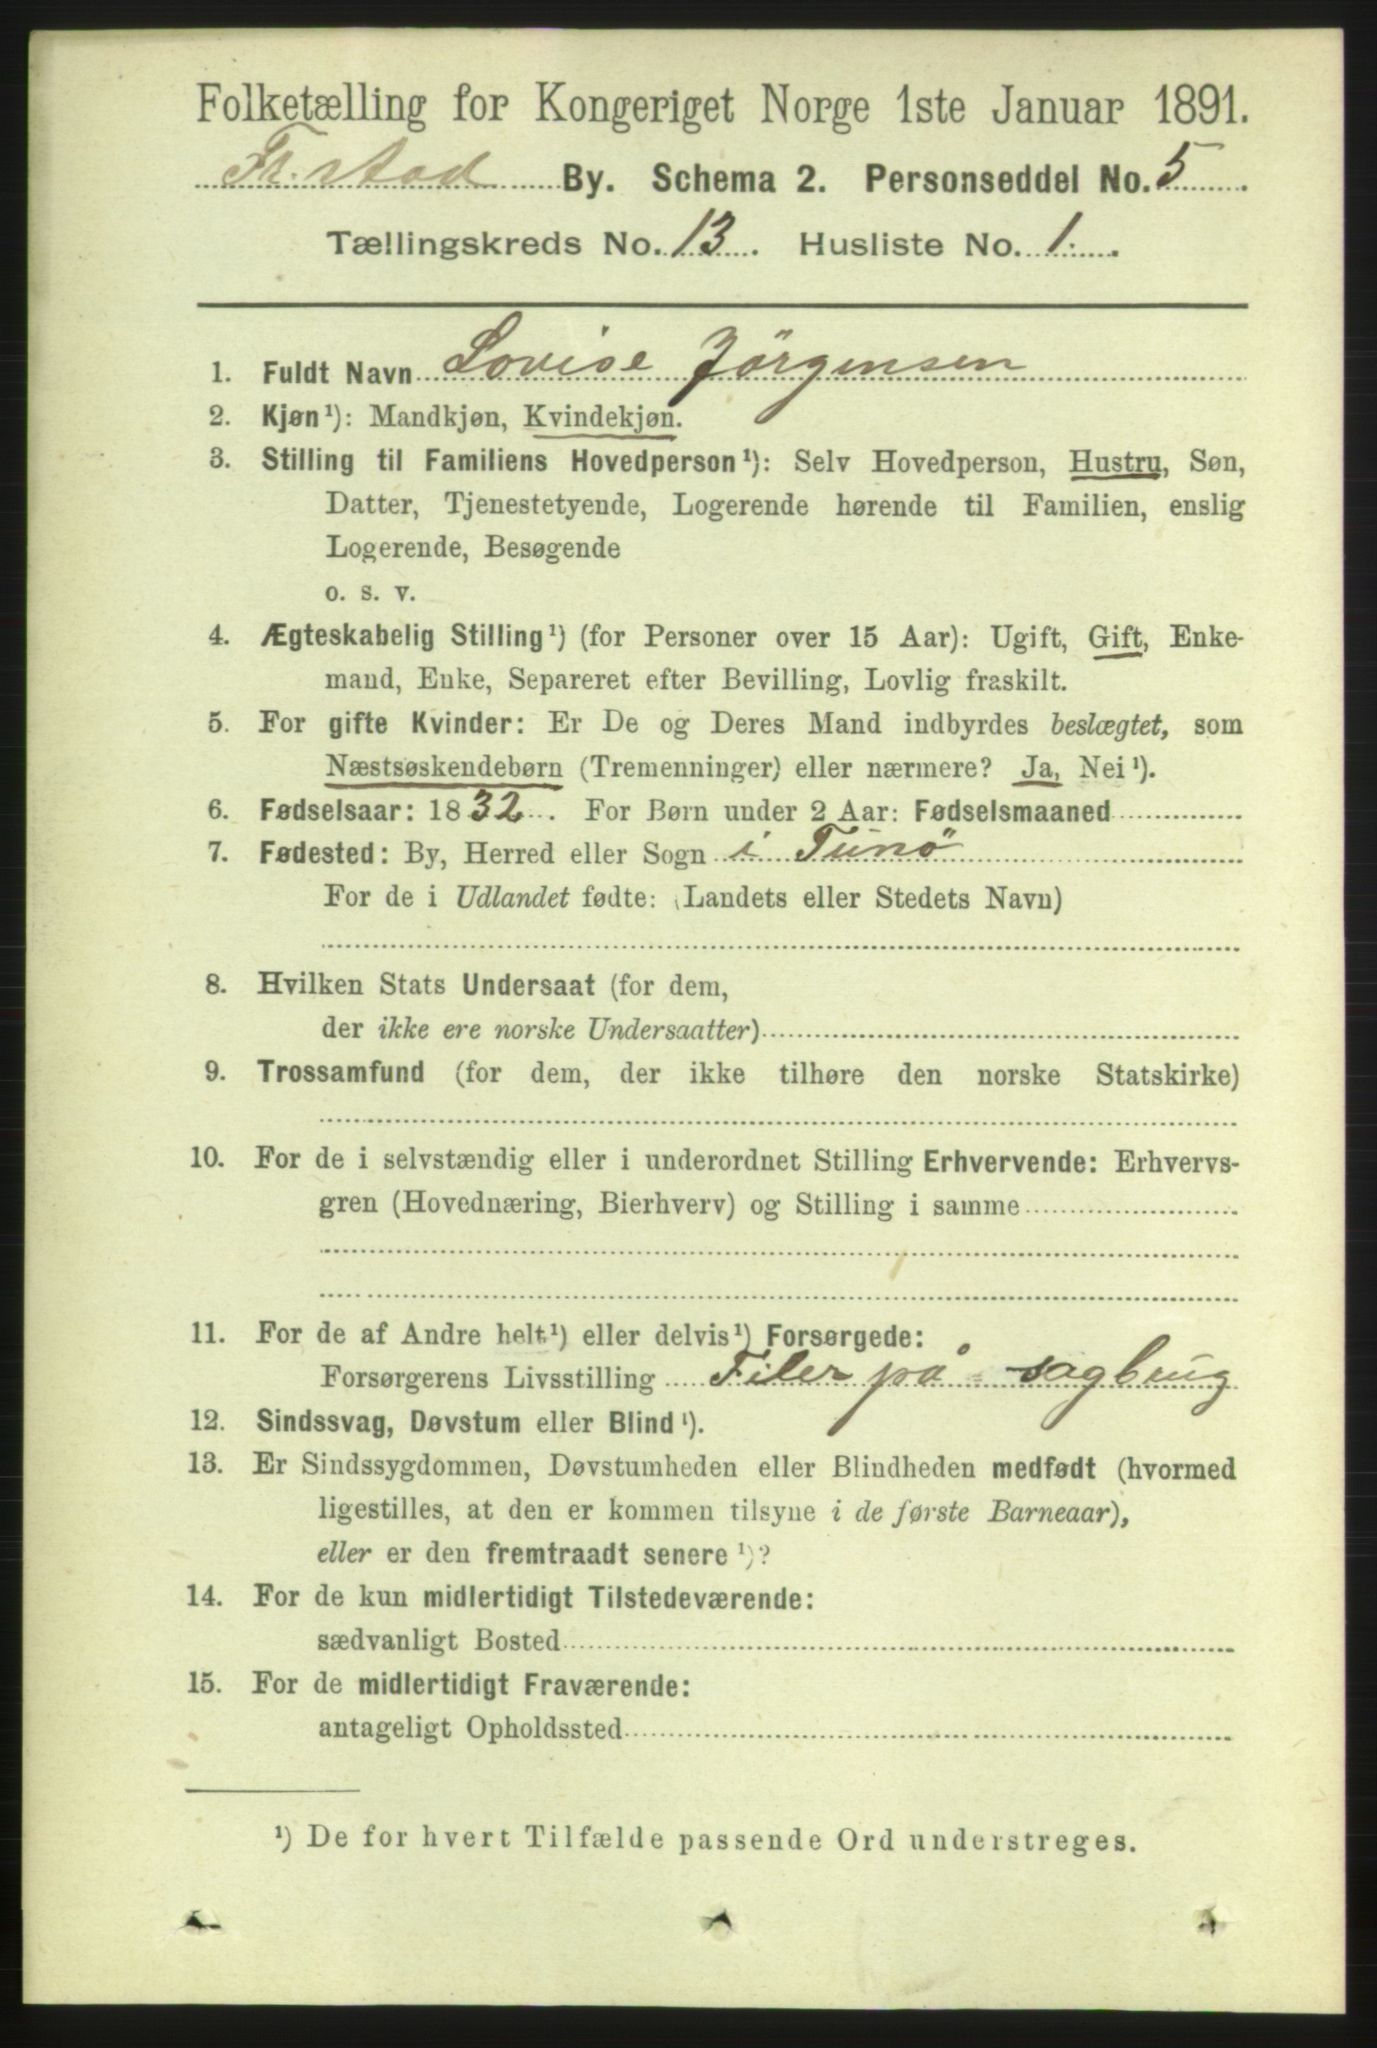 Folketælling for Kongeriget Norge 1ste Januar 1891.
Fr.stad By. Schema 2. Personseddel No. 5
Tællingskreds No. 13. Husliste No. 1.
1. Fuldt Navn Lovise Jörgensen
2. Kjøn¹): Mandkjøn, Kvindekjøn.
3. Stilling til Familiens Hovedperson¹): Selv Hovedperson, Hustru, Søn,
Datter, Tjenestetyende, Logerende hørende til Familien, enslig
Logerende, Besøgende
o. s. v.
4. Ægteskabelig Stilling¹) (for Personer over 15 Aar): Ugift, Gift, Enke-
mand, Enke, Separeret efter Bevilling, Lovlig fraskilt.
5. For gifte Kvinder: Er De og Deres Mand indbyrdes beslægtet, som
Næstsøskendebørn (Tremenninger) eller nærmere? Ja, Nei¹).
6. Fødselsaar: 1832. For Børn under 2 Aar: Fødselsmaaned
7. Fødested: By, Herred eller Sogn i Tunö
For de i Udlandet fødte: (Landets eller Stedets Navn)
8. Hvilken Stats Undersaat (for dem,
der ikke ere norske Undersaatter)
9. Trossamfund (for dem, der ikke tilhøre den norske Statskirke)
10. For de i selvstændig eller i underordnet Stilling Erhvervende: Erhvervs-
gren (Hovednæring, Bierhverv) og Stilling i samme
11. For de af Andre helt¹) eller delvis¹) Forsørgede:
Forsørgerens Livsstilling Filer på sagbrug
12. Sindssvag, Døvstum eller Blind¹).
13. Er Sindssygdommen, Døvstumheden eller Blindheden medfødt (hvormed
ligestilles, at den er kommen tilsyne i de første Barneaar),
eller er den fremtraadt senere¹)?
14. For de kun midlertidigt Tilstedeværende:
sædvanligt Bosted
15. For de midlertidigt Fraværende:
antageligt Opholdssted
¹) De for hvert Tilfælde passende Ord understreges.